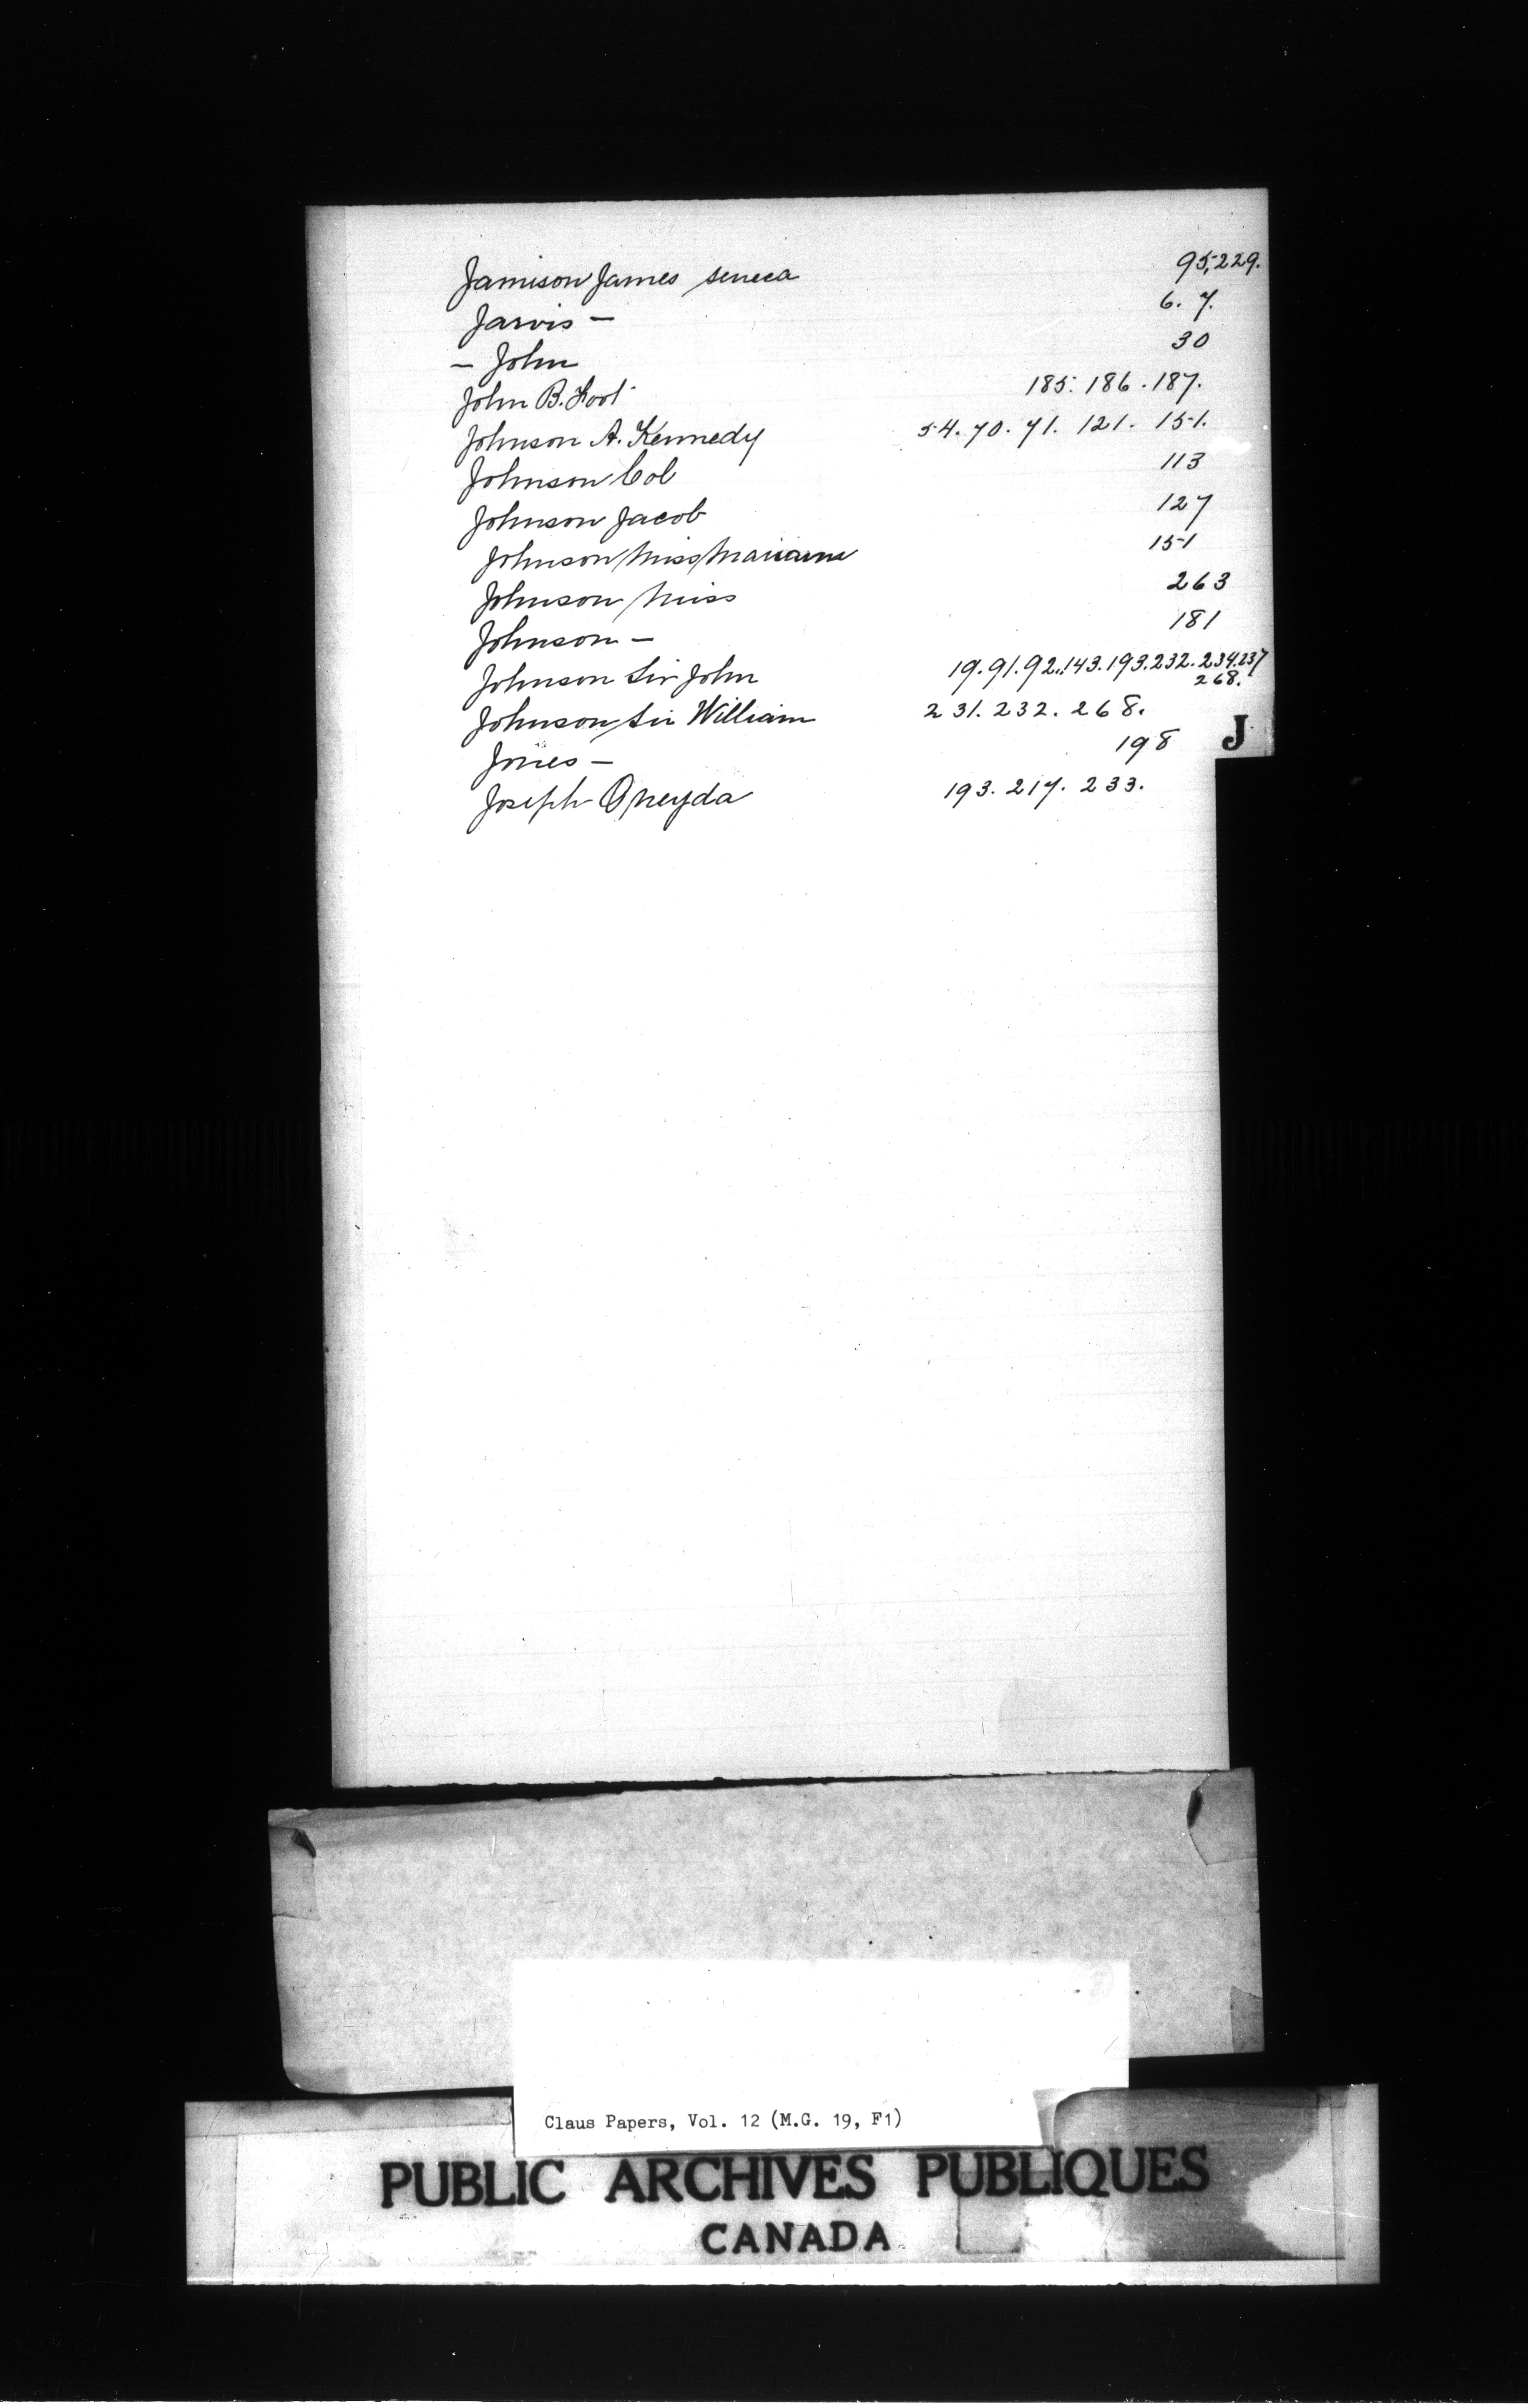 Jamison James seneca 95,229.
Jarvis — 6. 7.
— John 30
John B. Foot 185. 186. 187.
Johnson A. Kennedy 54. 70. 71. 121. 151.
Johnson Col 113
Johnson Jacob 127
Johnson Miss 151
Johnson Miss 263
Johnson — 181
Johnson Sir John 19. 91. 92. 143. 193. 232. 234. 237
268.
Johnson Sir William 231. 232. 268.
J
Jones — 198
Joseph Oneyda 193. 217. 233.
Claus Papers, Vol. 12 (M.G. 19, F1)
PUBLIC ARCHIVES PUBLIQUES
CANADA